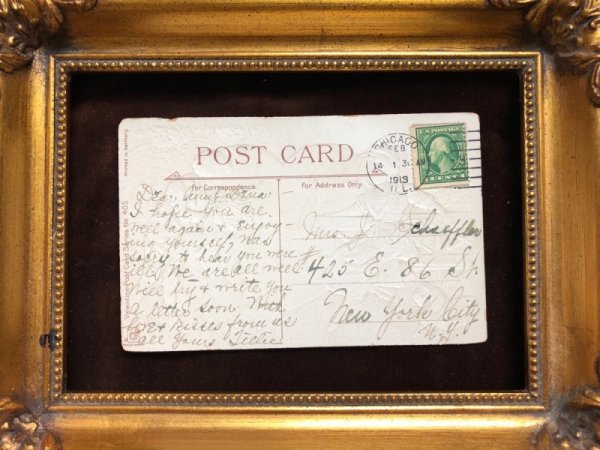 POST CARD
For Correspondence
For Address Only.
CHICAGO
FEB
14 1 30 AM
1913
ILL.
U.S. POSTAGE
Dear Aunt
I hope you are
well again & enjoy-
ing yourself, was
sorry to hear you were
ill. We are all well.
Will try & write you
a letter soon. With
love & kisses from us
all Yours Tillie
Mrs J. Schaeffler
# 425 E. 86 St.
New York City
N.Y.
Printed in Germany.
Series No. 405